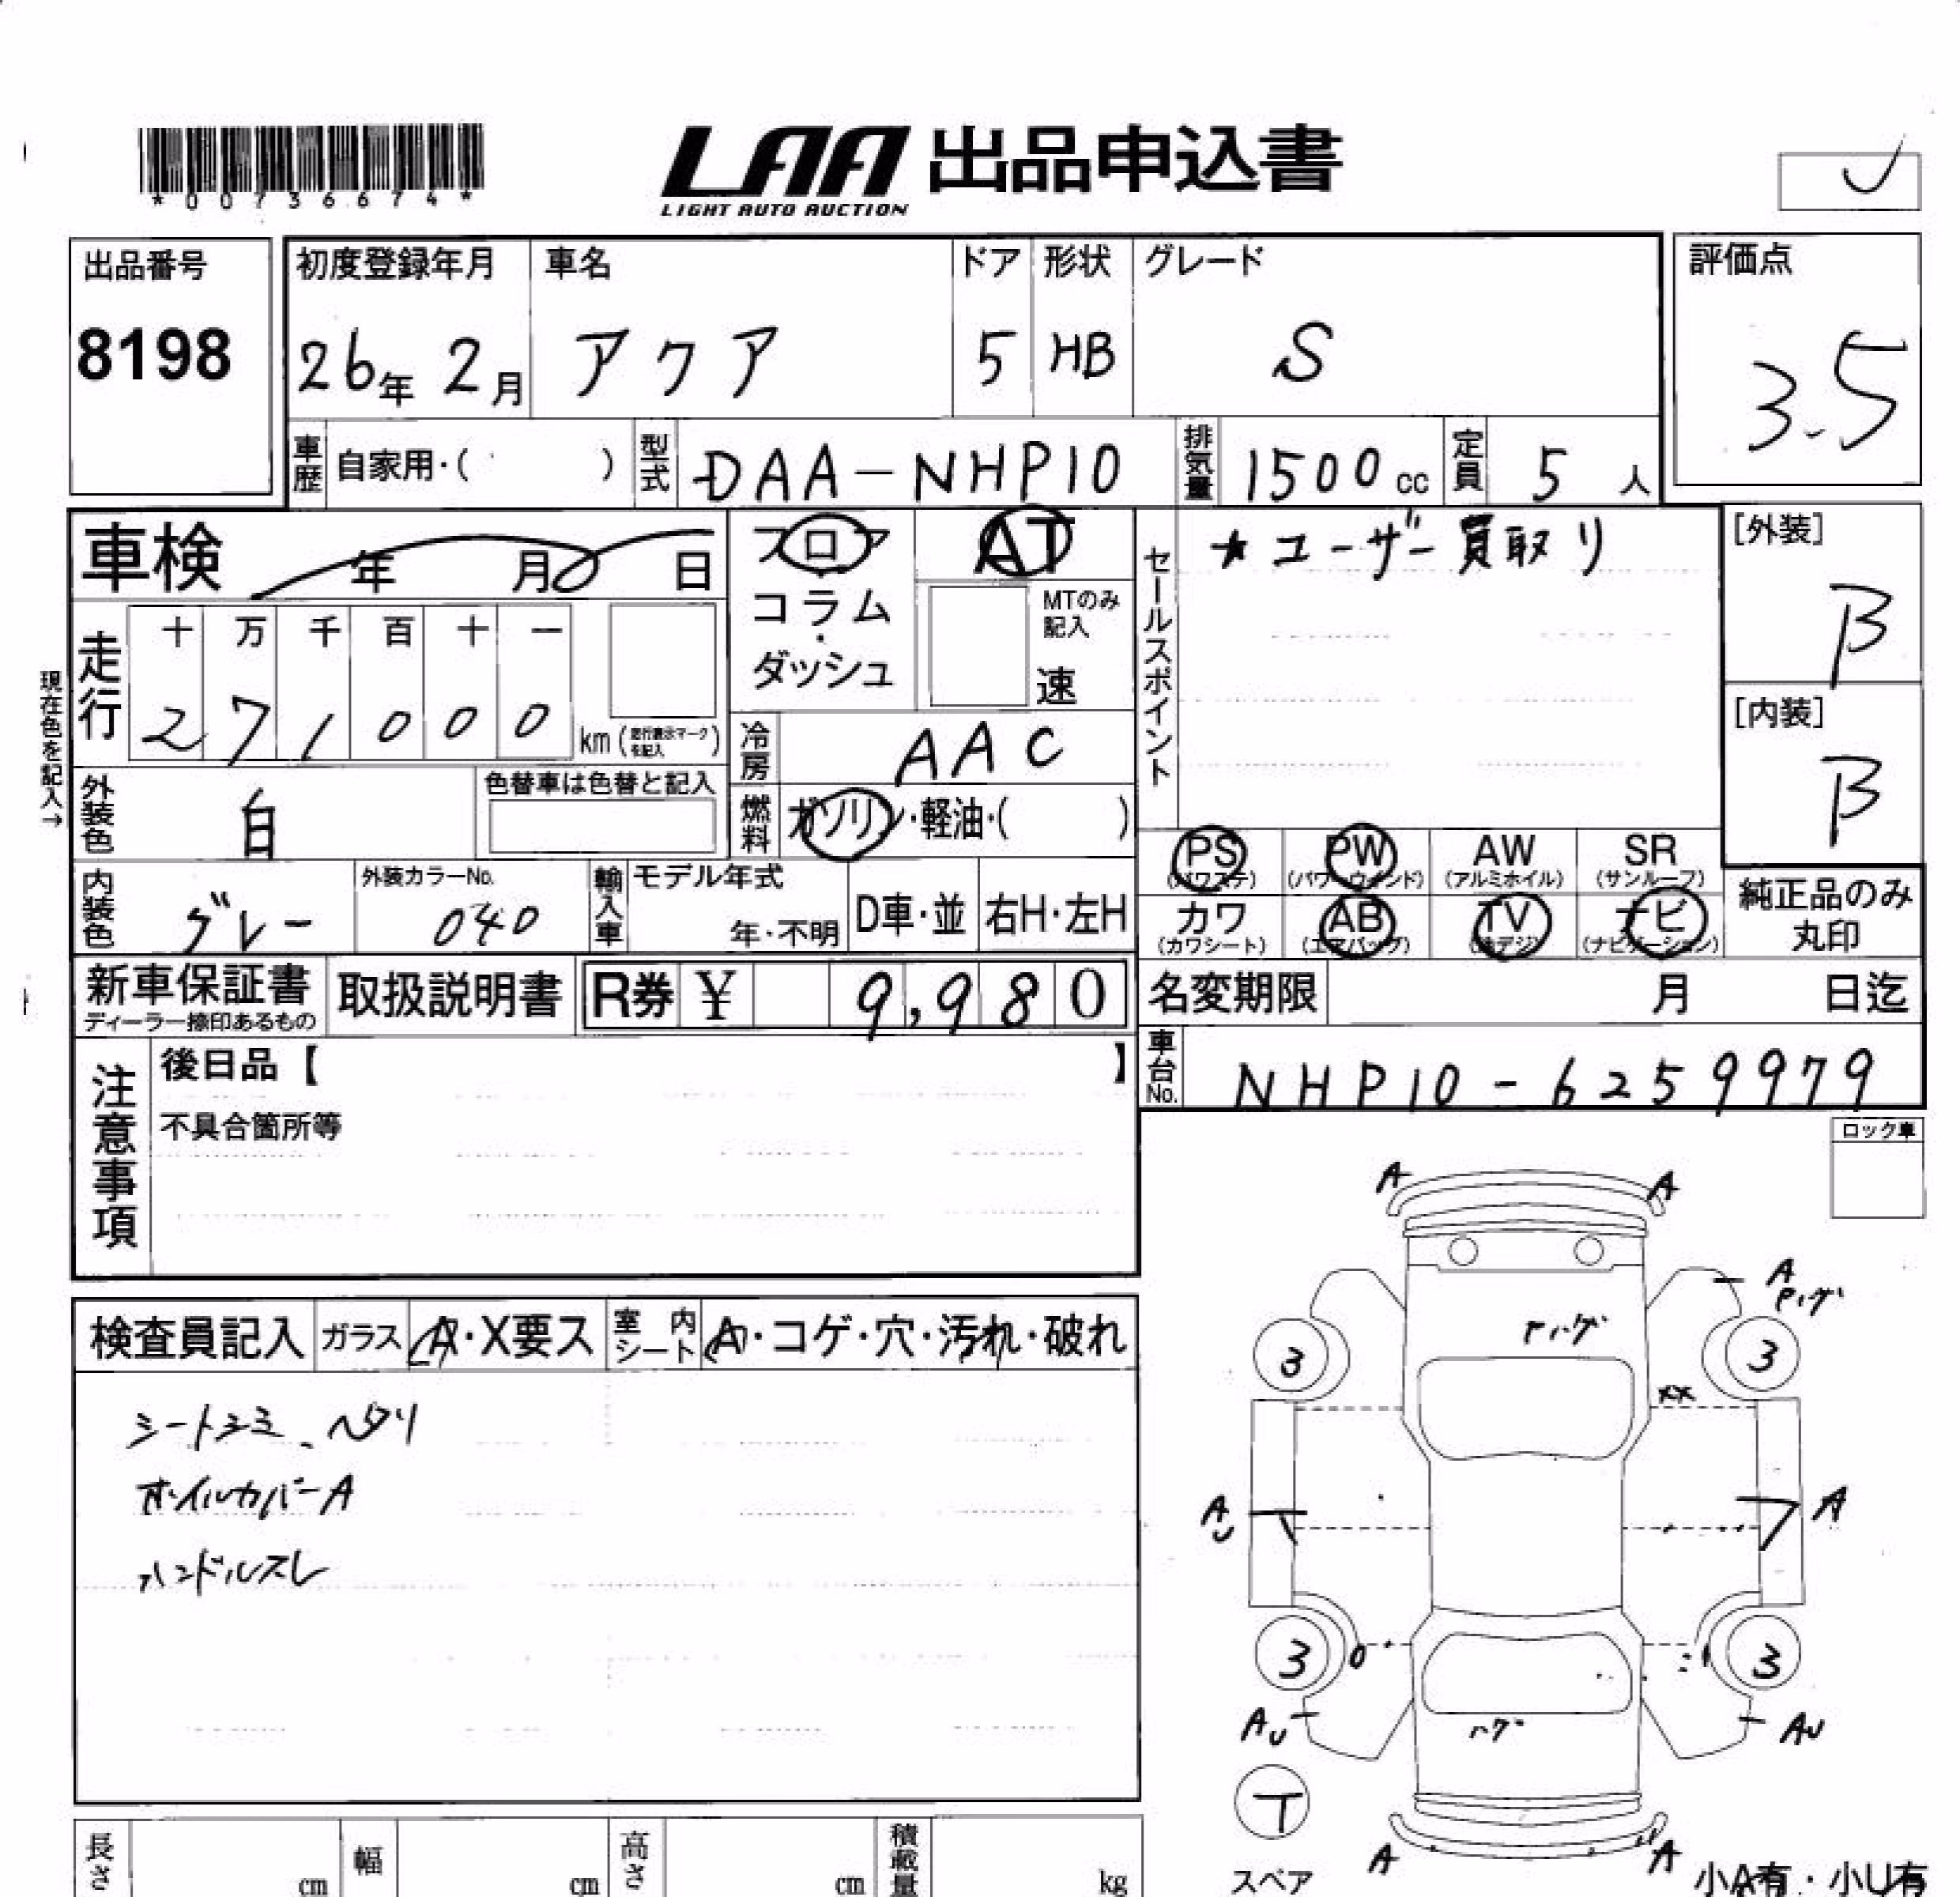 *00736674*
LAA 出品申込書
LIGHT AUTO AUCTION
出品番号
8198
初度登録年月
26年 2月
車名
アクア
ドア
5
形状
HB
グレード
S
評価点
3.5
車歴 自家用・( )
型式 DAA-NHP10
排気量 1500cc
定員 5人
車検 年 月 日
フロア
コラム
・
ダッシュ
AT
MTのみ記入
速
セールスポイント
★ユーザー買取り
[外装]
B
[内装]
B
現在色を記入→
走行
十 万 千 百 十 一
2 7 1 0 0 0 km
冷房 AAC
燃料 ガソリン・軽油・( )
外装色 白
色替車は色替と記入
内装色 グレー
外装カラーNo.
040
輸入車
モデル年式
年・不明
D車・並
右H・左H
PS (パワステ)
PW (パワーウインド)
AW (アルミホイル)
SR (サンルーフ)
カワ (カワシート)
AB (エアバッグ)
TV (地デジ)
ナビ (ナビゲーション)
純正品のみ
丸印
新車保証書
ディーラー捺印あるもの
取扱説明書
R券 ¥ 9,980
名変期限 月 日迄
車台No. NHP10-6259979
注意事項
後日品【 】
不具合箇所等
ロック車
検査員記入
ガラス A・X要ス
室内シート A・コゲ・穴・汚れ・破れ
シートシミ、ヘタリ
ホイルカバーA
ハンドルスレ
A A
A
3 3
XX
AU A
3 3
AU AU
ハゲ
T
スペア
A A
小A有・小U有
長さ cm
幅 cm
高さ cm
積載量 kg